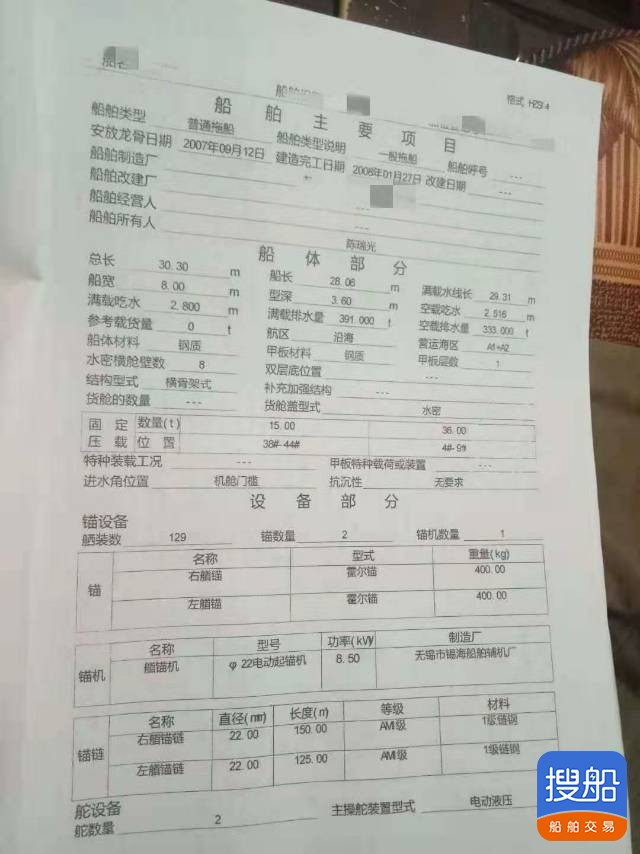 船名
格式 HZS14
船舶主要项目
船舶类型 普通拖船 船舶类型说明 一般拖船 船舶呼号 ---
安放龙骨日期 2007年09月12日 建造完工日期 2008年01月27日 改建日期 ---
船舶制造厂
船舶改建厂 ---
船舶经营人 ---
船舶所有人 陈瑞光
船体部分
总长 30.30 m 船长 28.06 m 满载水线长 29.31 m
船宽 8.00 m 型深 3.60 m 空载吃水 2.516 m
满载吃水 2.800 m 满载排水量 391.000 t 空载排水量 333.000 t
参考载货量 0 t 航区 沿海 营运海区 A1+A2
船体材料 钢质 甲板材料 钢质 甲板层数 1
水密横舱壁数 8 双层底位置 ---
结构型式 横骨架式 补充加强结构 ---
货舱的数量 --- 货舱盖型式 水密
固定压载 数量(t) 15.00 36.00
位置 38#-44# 4#-9#
特种装载工况 --- 甲板特种载荷或装置 ---
进水角位置 机舱门槛 抗沉性 无要求
设备部分
锚设备
舾装数 129 锚数量 2 锚机数量 1
锚 名称 型式 重量(kg)
右艏锚 霍尔锚 400.00
左艏锚 霍尔锚 400.00
锚机 名称 型号 功率(kW) 制造厂
艏锚机 φ22电动起锚机 8.50 无锡市锡海船舶辅机厂
锚链 名称 直径(mm) 长度(m) 等级 材料
右艏锚链 22.00 150.00 AM1级 1级链钢
左艏锚链 22.00 125.00 AM1级 1级链钢
舵设备
舵数量 2 主操舵装置型式 电动液压
搜船
船舶交易